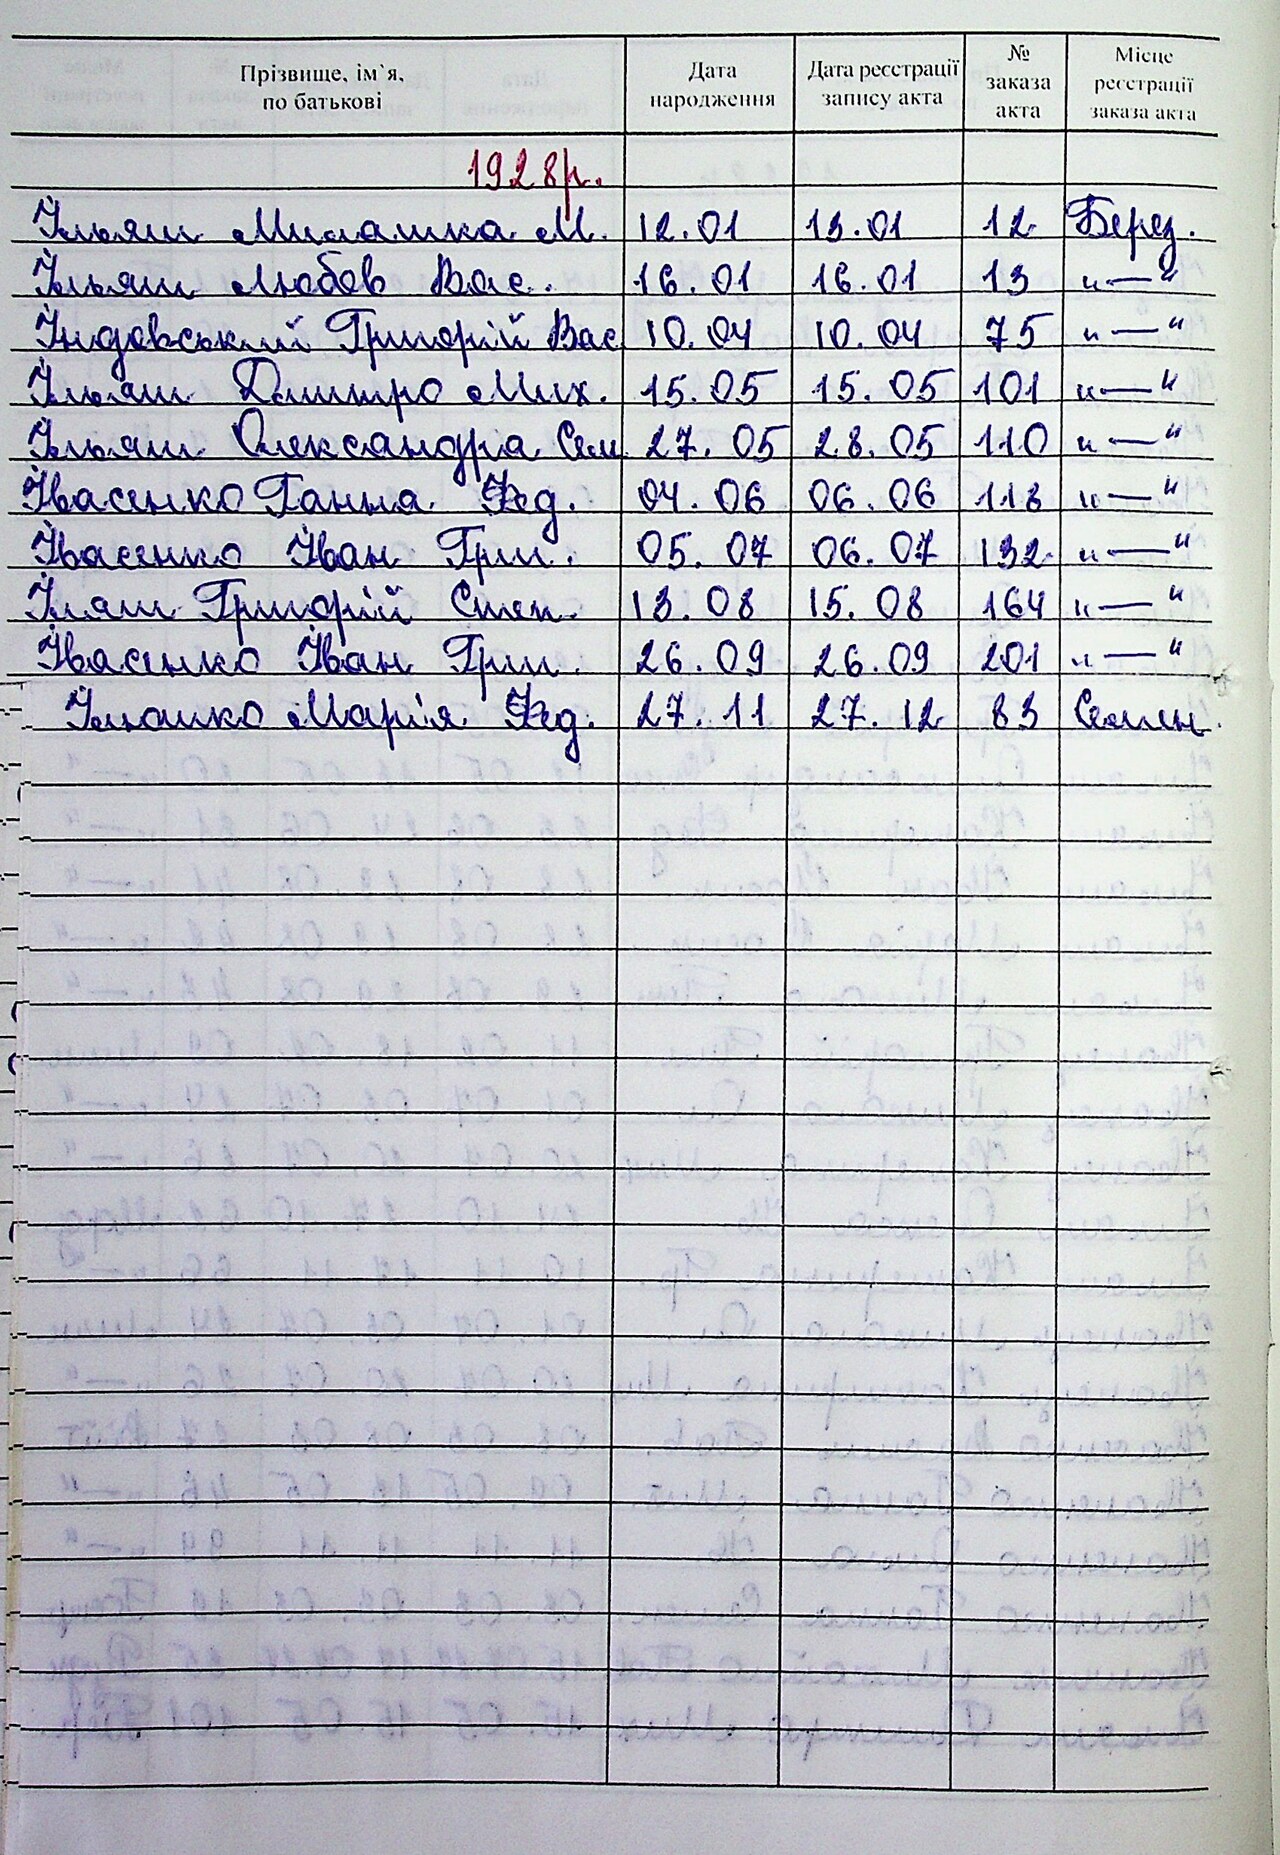 Прізвище, ім`я, по батькові Дата народження Дата реєстрації запису акта № заказа акта Місце реєстрації заказа акта
1928р.
Ільяш Милашка М. 12.01 13.01 12 Берез.
Ільяш Любов Вас. 16.01 16.01 13 "—"
Індовський Григорій Вас 10.04 10.04 75 "—"
Ільяш Дмитро Мих. 15.05 15.05 101 "—"
Ільяш Олександра Сем 27.05 28.05 110 "—"
Івасенко Ганна Фед. 04.06 06.06 118 "—"
Івасенко Іван Гри. 05.07 06.07 132 "—"
Іляш Григорій Степ. 13.08 15.08 164 "—"
Івасенко Іван Гри. 26.09 26.09 201 "—"
Ільюшко Марія Фед. 27.11 27.12 83 Семен.